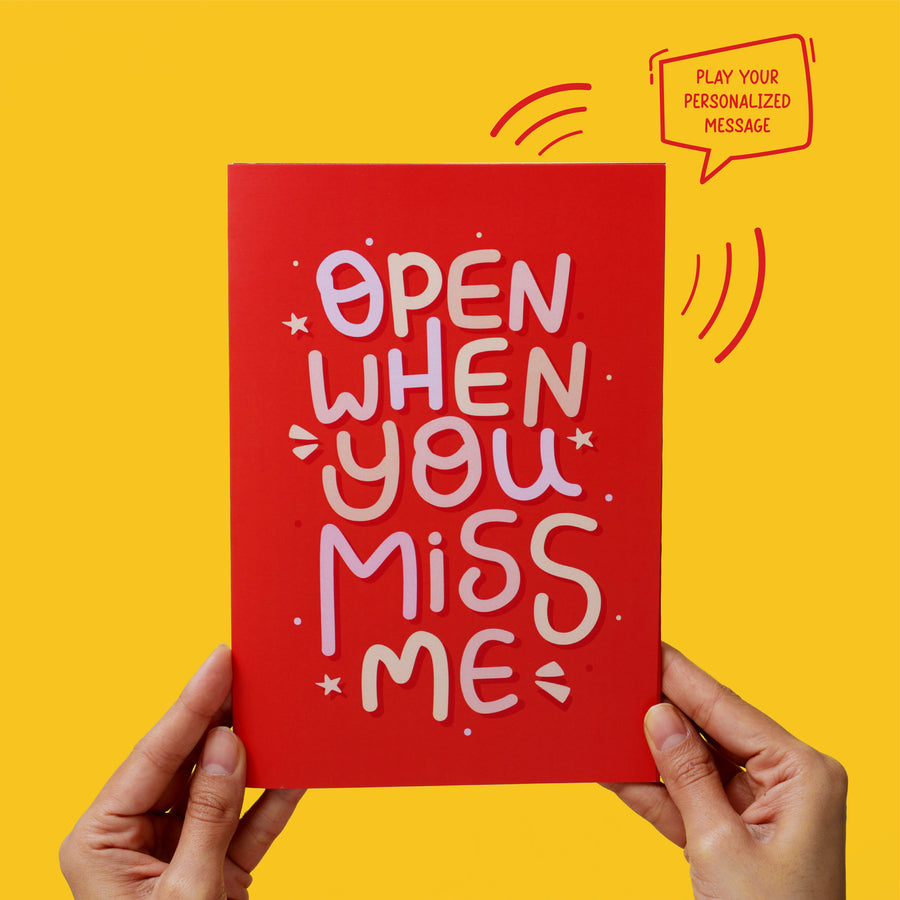 PLAY YOUR
PERSONALIZED
MESSAGE
OPEN
WHEN
YOU
MiSS
ME